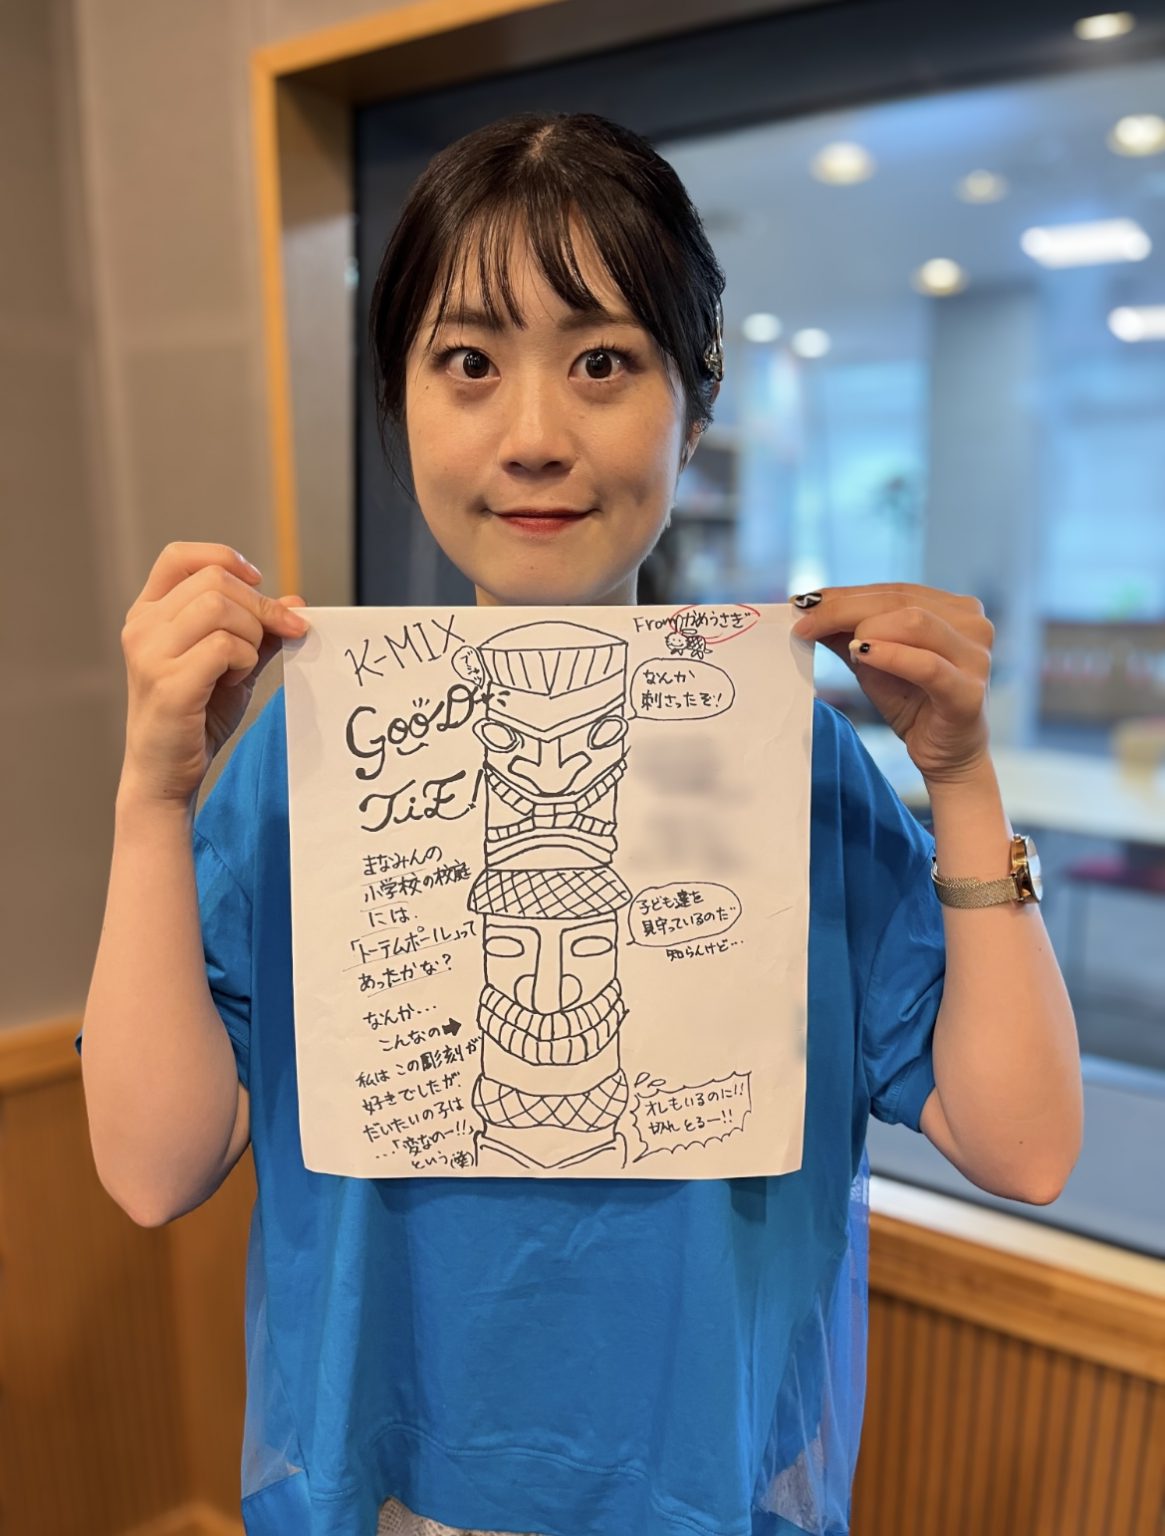 K-MIX
GOOD
TiE!
まなみんの
小学校の校庭
には、
「トーテムポール」って
あったかな？
なんか...
こんなの➡
私は この彫刻が
好きでしたが、
だいたいの子は
...「変なのー!!」
という(笑)
From かめうさぎ
なんか
刺さったぞ!
子ども達を
見守っているのだ
知らんけど...
オレもいるのに!!
切れとるー!!